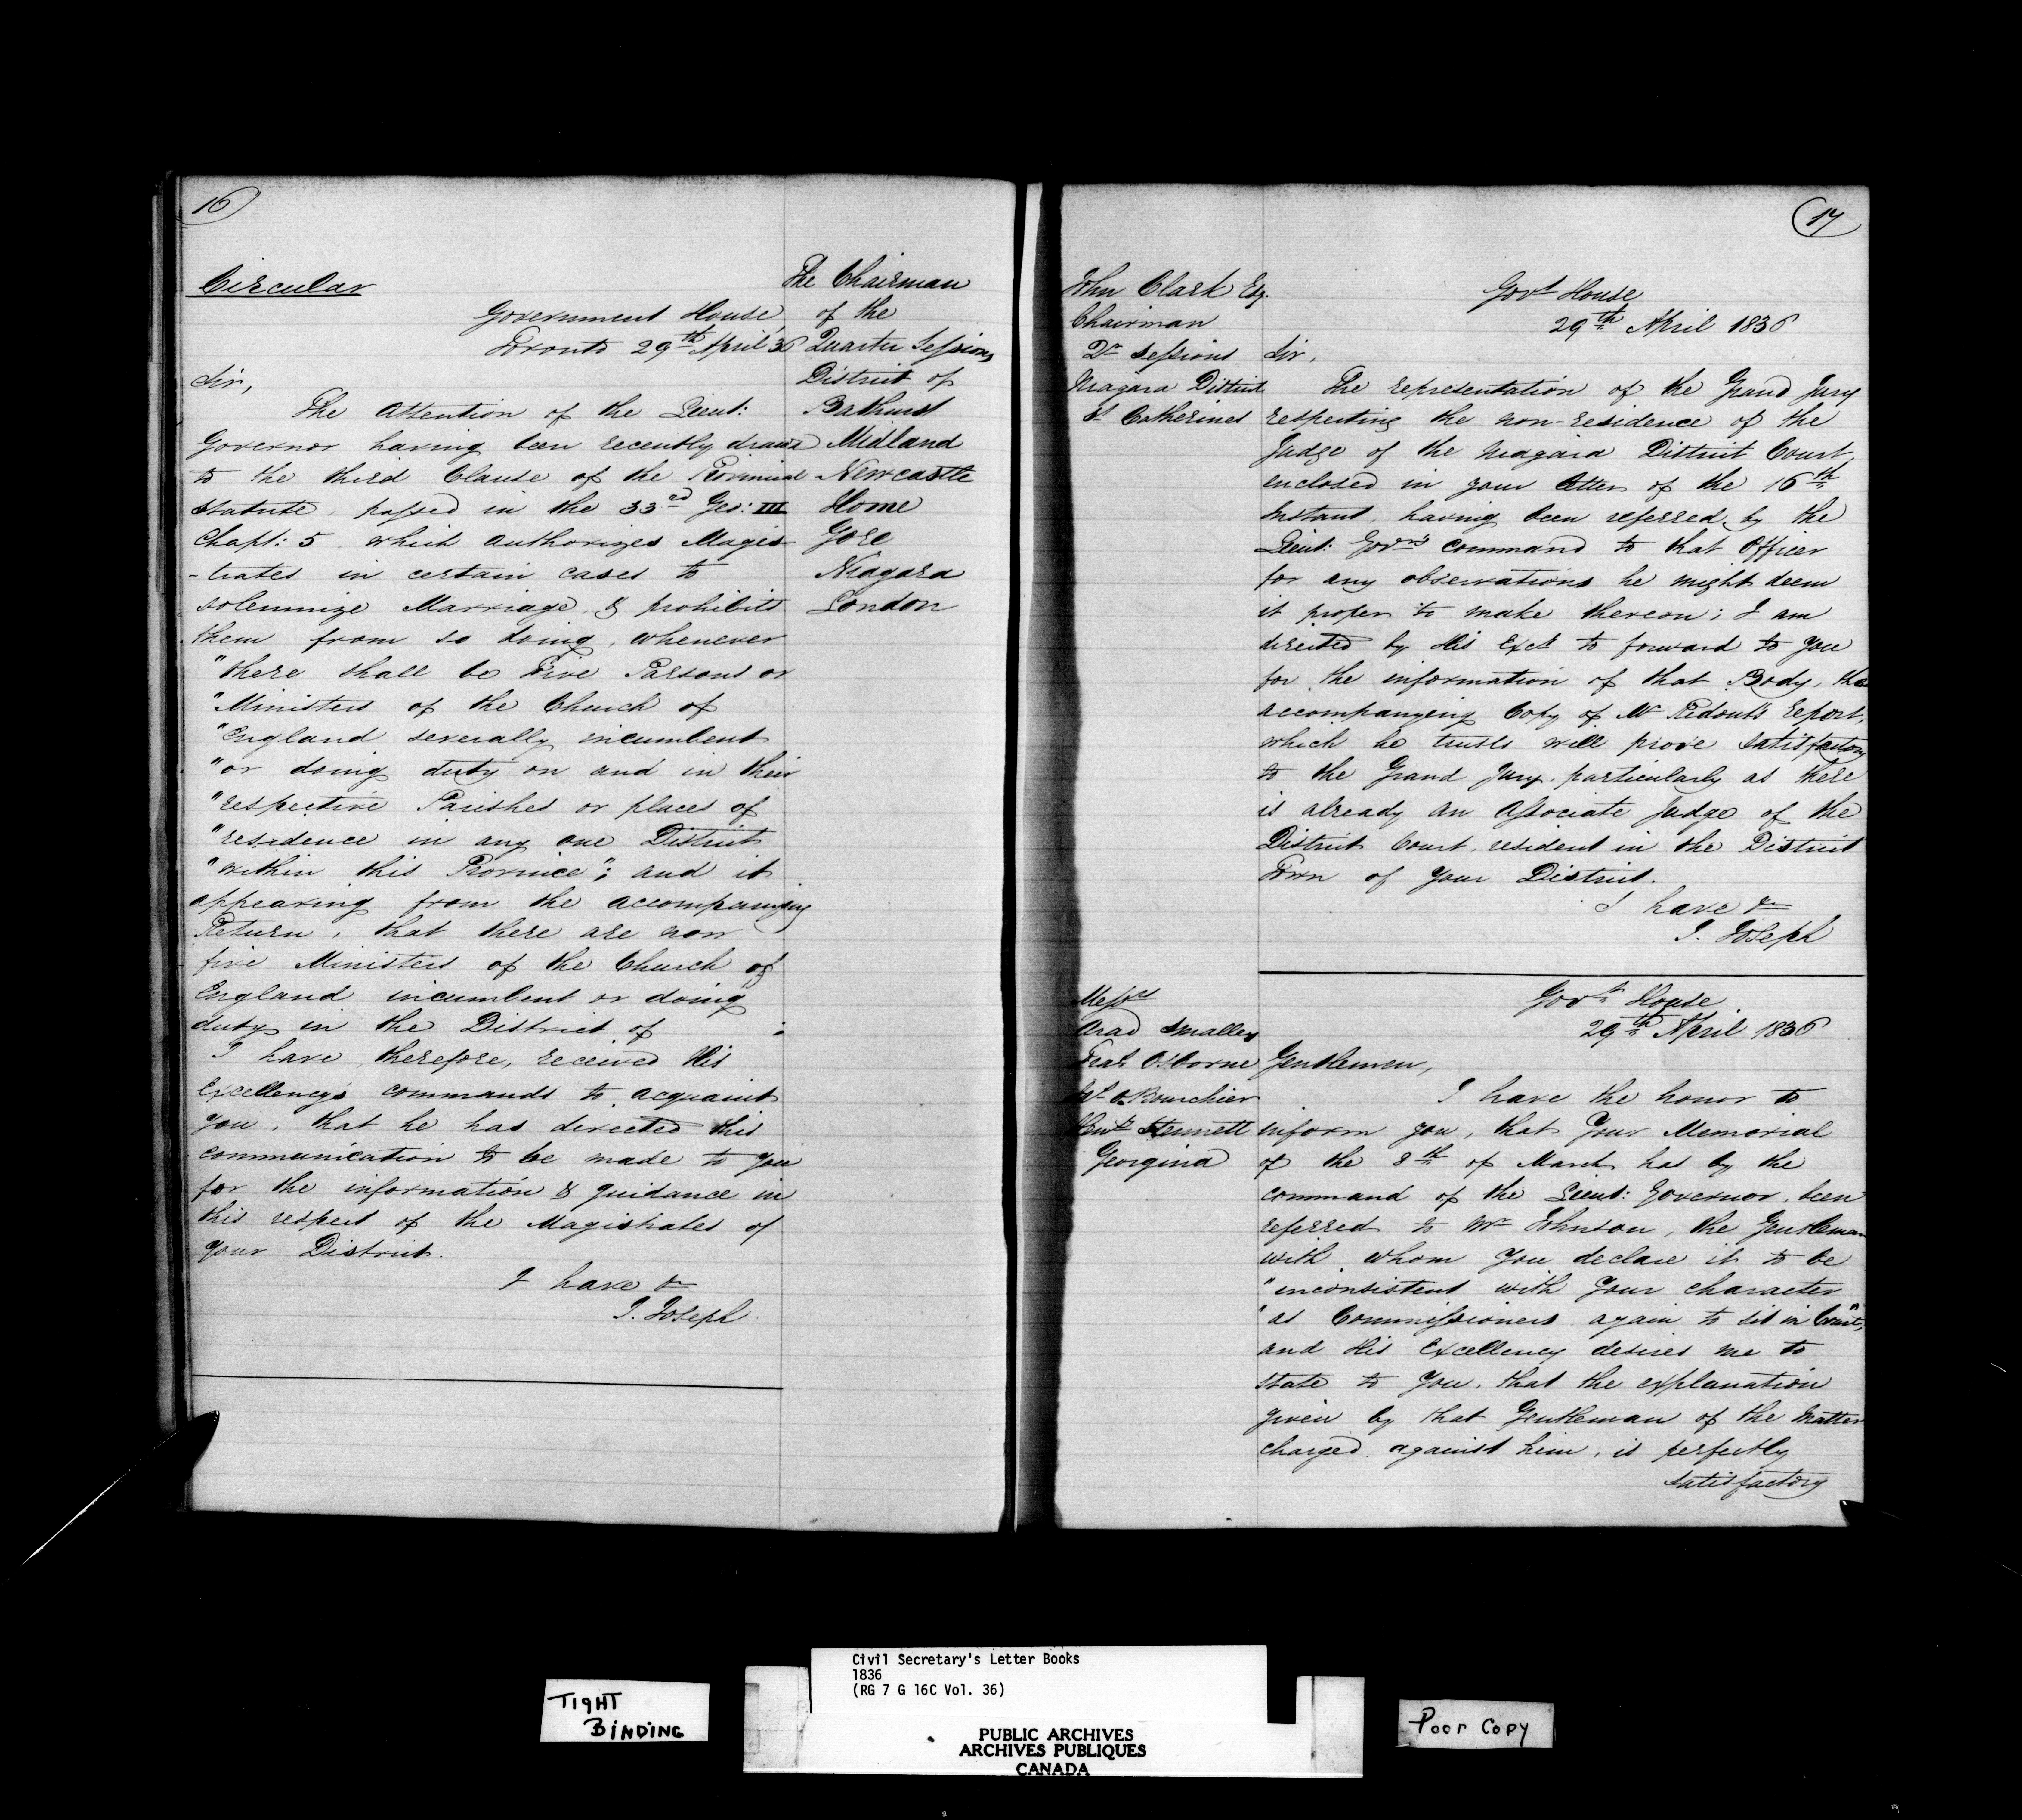 16
Circular
Government House,
Toronto 29th April '36
Sir,
The Attention of the Lieut:
Governor having been recently drawn
to the third Clause of the Provincial
Statute, passed in the 33rd Geo: III
Chapt: 5, which authorizes Magis-
-trates in certain cases to
solemnize Marriage, & prohibits
them from so doing, whenever
"there shall be Five Parsons or
"Ministers of the Church of
"England severally incumbent
"or doing duty on and in their
"respective Parishes or places of
"residence in any one District
"within this Province"; and it
appearing from the accompanying
Return, that there are now
five Ministers of the Church of
England incumbent or doing
duty in the District of ;
I have, therefore, received His
Excellency's commands to acquaint
you, that he has directed this
communication to be made to you
for the information & guidance in
this respect of the Magistrates of
your District.
I have &c
J. Joseph
The Chairman
of the
Quarter Sessions
District of
Bathurst
Midland
Newcastle
Home
Gore
Niagara
London
17
John Clark Esq.
Chairman
Qr Sessions
Niagara District
St Catherines
Govt House
29th April 1836
Sir,
The representation of the Grand Jury
respecting the non-residence of the
Judge of the Niagara District Court,
enclosed in your letter of the 16th
Instant, having been referred by the
Lieut: Govrs command to that Officer
for any observations he might deem
it proper to make thereon; I am
directed by His Excy to forward to you
for the information of that Body, the
accompanying Copy of Mr Ridout's report,
which he trusts will prove satisfactory
to the Grand Jury, particularly as there
is already an Associate Judge of the
District Court, resident in the District
Town of your District.
I have &c
J. Joseph
Messrs
Arad Smalley
Osborne
Bourchier
Stennett
Georgina
Govt House
29th April 1836
Gentlemen,
I have the honor to
inform you, that Your Memorial
of the 8th of March has by the
command of the Lieut: Governor been
referred to Mr Johnson, the Gentleman
with whom you declare it to be
"inconsistent with Your character
"as Commissioners again to sit in Court",
and His Excellency desires me to
state to You, that the explanation
given by that Gentleman of the matter
charged against him, is perfectly
satisfactory
TIGHT
BINDING
Civil Secretary's Letter Books
1836
(RG 7 G 16C Vol. 36)
PUBLIC ARCHIVES
ARCHIVES PUBLIQUES
CANADA
Poor Copy